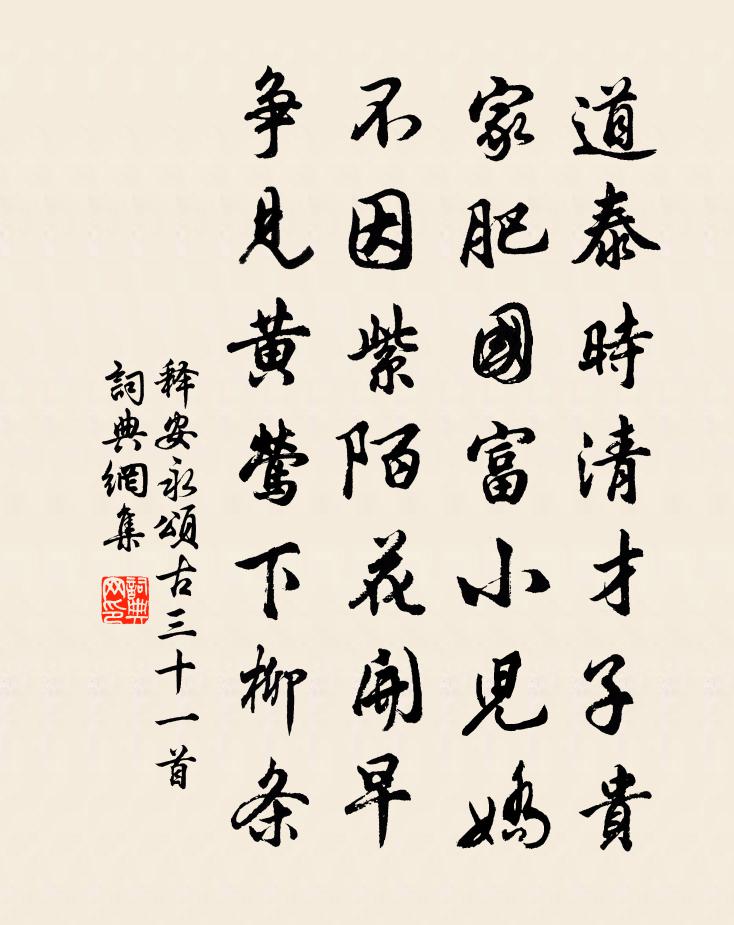 道泰時清才子貴
家肥國富小児嬌
不因紫陌花開早
争見黄鶯下柳条
釋安永頌古三十一首
詞典網集
詞典網印